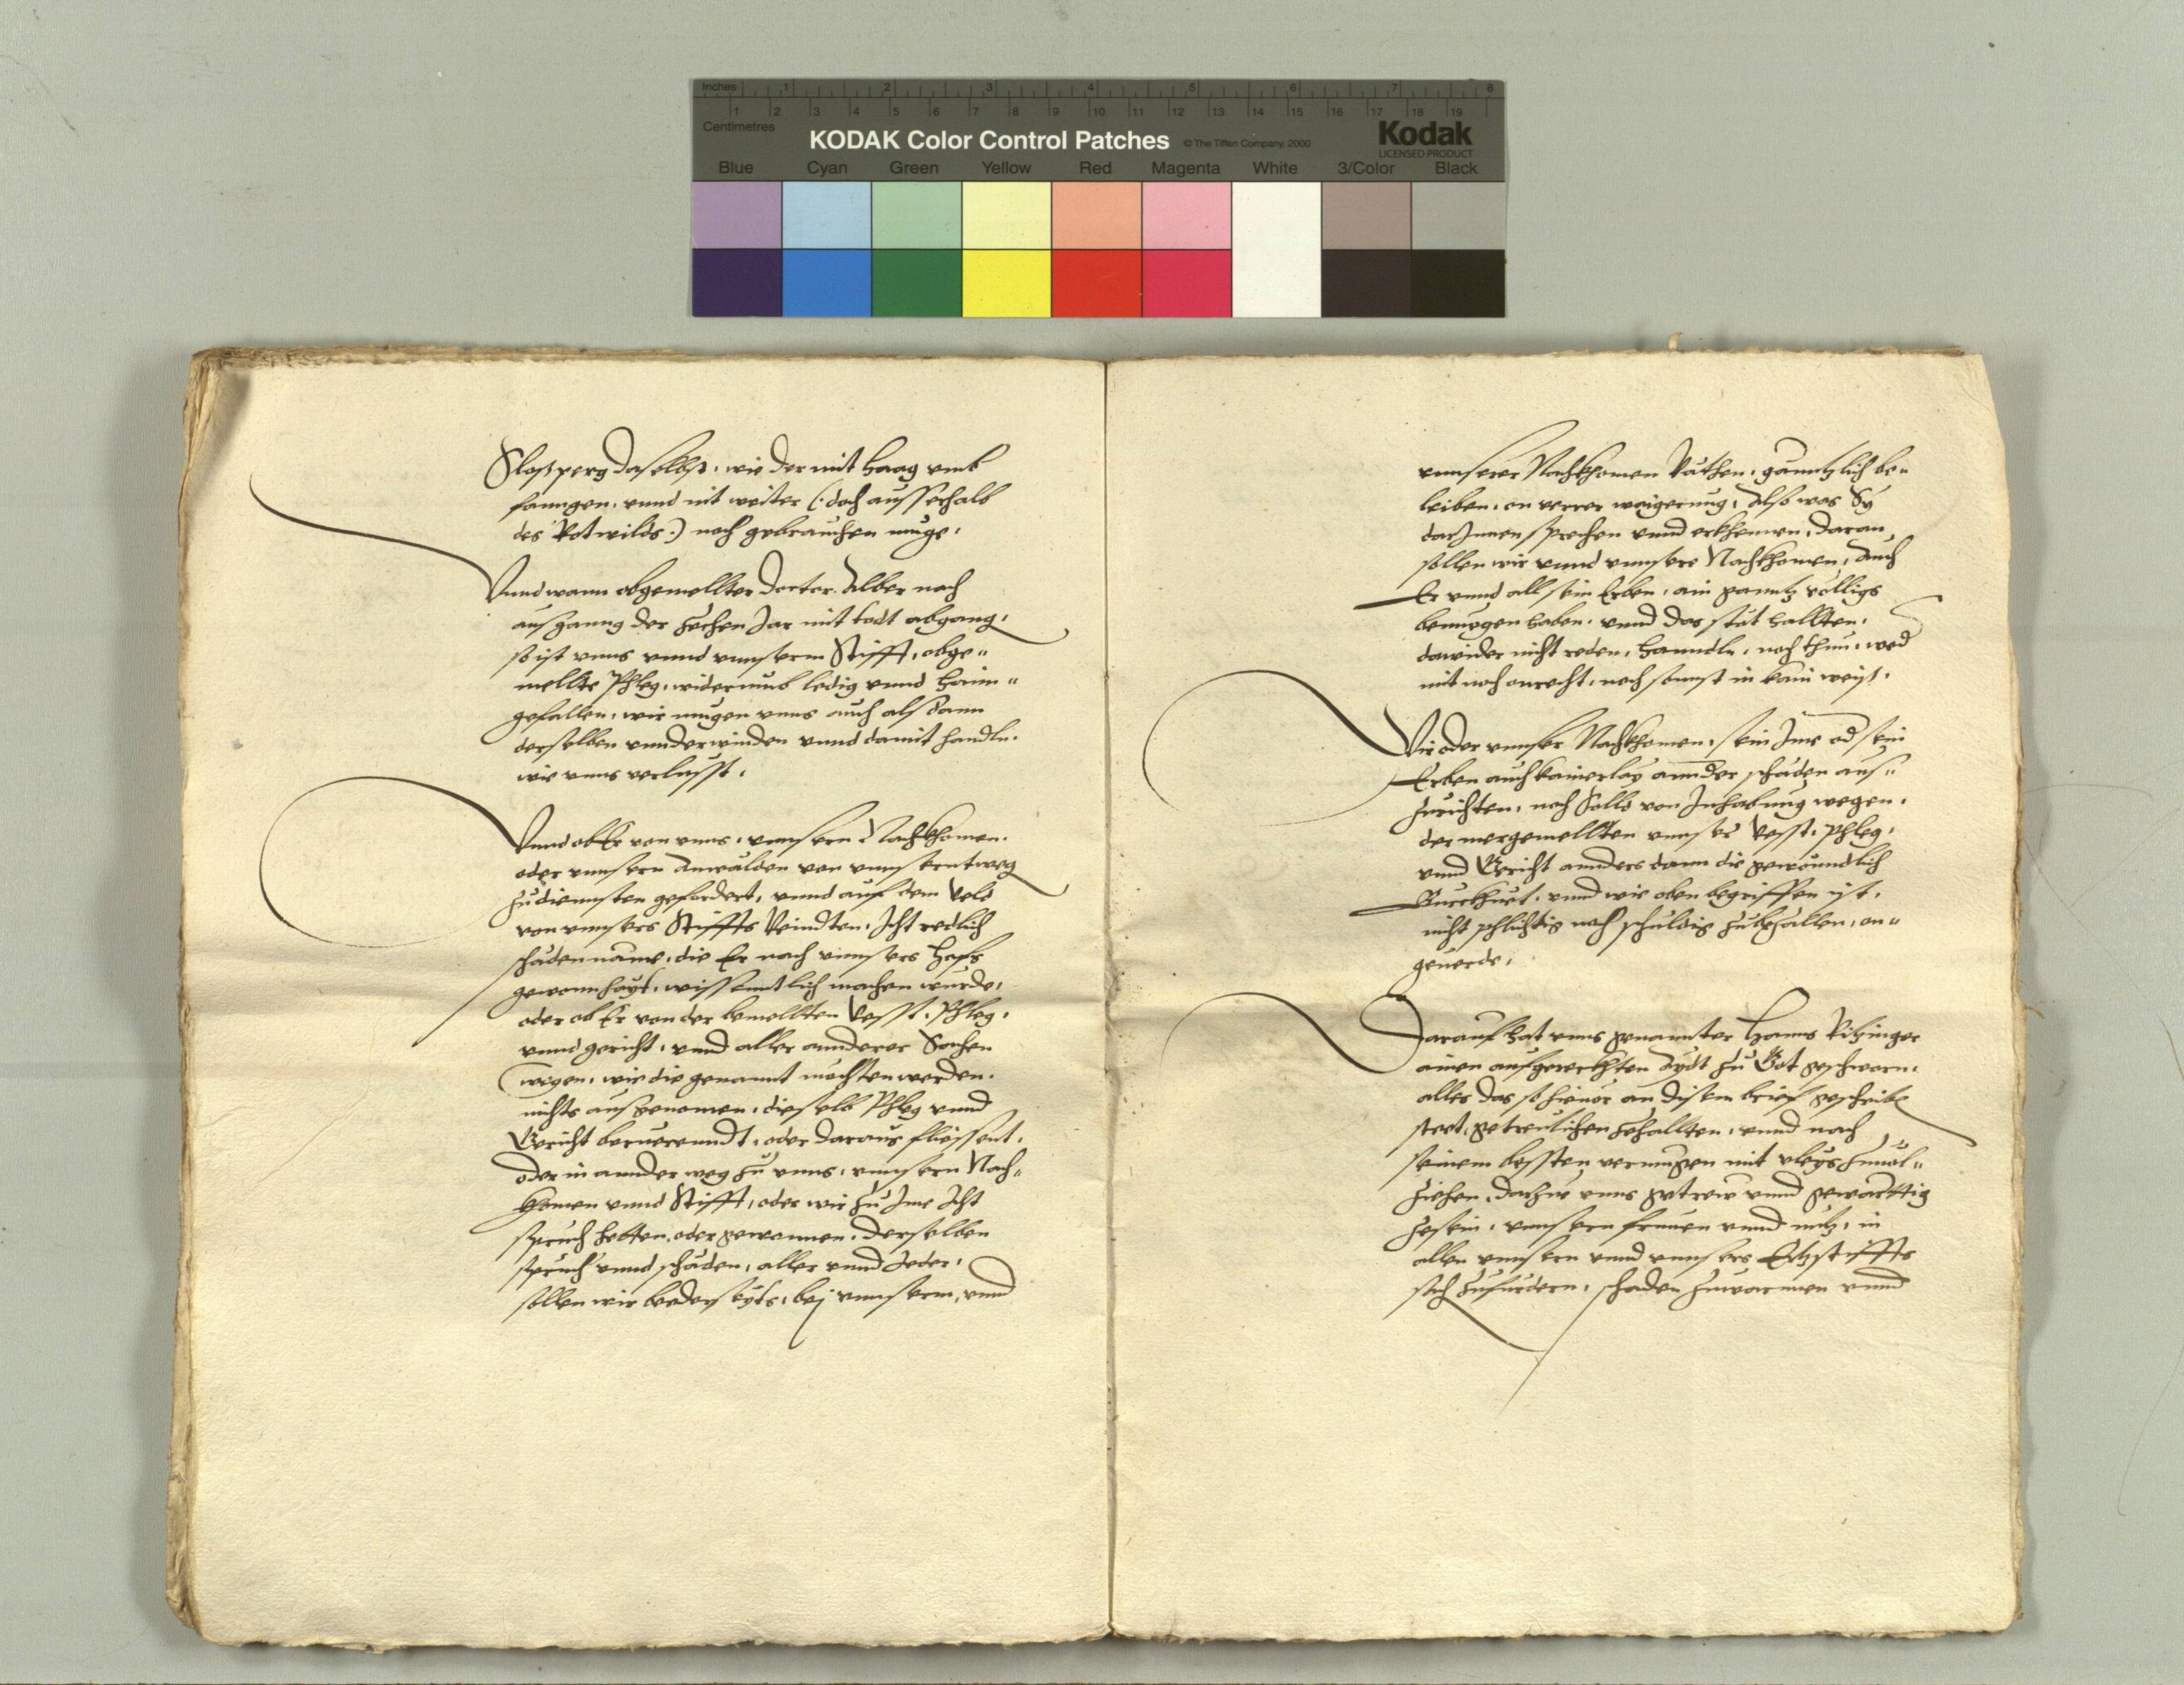 Inches 1 2 3 4 5 6 7 8
1 2 3 4 5 6 7 8 9 10 11 12 13 14 15 16 17 18 19
Centimetres
KODAK Color Control Patches © The Tiffen Company, 2000 Kodak
LICENSED PRODUCT
Blue Cyan Green Yellow Red Magenta White 3/Color Black
Sloßperg daselbst, wie der mit haag vmb
fanngen, vnnd nit weiter (: doch ausserhalb
des Rotwilds :) noch gebrauchen muge.
Vnnd wann obgemellter Docter Alber nach
ausganng der zechen Jar mit todt abgang,
so ist vnns vnnd vnnserm Stifft, obge=
mellte Phleg, widerumb ledig vnnd haim=
gefallen, wir mugen vnns auch alsdann
derselben vnnderwinden vnnd damit handln,
wie vnns verlusst.
Vnnd ob Er von vnns, vnnsern Nachkhomen,
oder vnnsern Anwälden von vnnsern tweg
zu diennsten gefordert, vnnd auf dem Veld
von vnnsers Stiffts Veindten, Icht redlich
schaden name, die Er nach vnnsers hofs
gewonnhayt, wissenntlich machen wurde,
oder ob Er von der bemellten Vesst, Phleg,
vnnd gericht, vnnd aller annderer Sachen
wegen, wie die genannt möchten werden,
nichts ausgenomen, dieselb Phleg vnnd
Gericht beruerenndt, oder daraus fliessent,
oder in annder weg zu vnns, vnnsern Nach=
khomen vnnd Stifft, oder wir zu Ime Icht
spruch hetten, oder gewonnen, derselben
spruch vnnd schäden, aller vnnd Jeder,
sollen wir bederseyts, bej vnnserm, vnnd
vnnserer Nachkhomen Räthen, gänntzlich be=
leiben, on verrer waigerung, Also was Sy
darInnen sprechen vnnd erkhennen, daran
sollen wir vnnd vnnsere Nachkhomen, auch
Er vnnd all sein Erben, ain ganntz völligs
benuegen haben, vnnd das stät hallten,
dawider nicht reden, hanndln, noch thun, wed
mit noch onrecht, noch sonnst in kain weiß.
Wir oder vnnser Nachkhomen, sein Ime od sein
Erben auch kainerlay annder schäden aus=
zurichten, noch Solld von Inhabung wegen,
der mergemellten vnnser Vesst, Phleg,
vnnd Gericht annders dann die gewoundlich
Burckhuet, vnnd wie oben begriffen ist,
nicht phlichtig noch schuldig zubezallen, on=
geuerde.
Darauf hat vnns genannter Hanns
ainen aufgereckhten Aydt zu Got geschworn,
alles das so hieuor an disem brief geschribn
stet, getreulichen zehallten, vnnd nach
seinem bessten vermugen mit vleys zuuol=
ziehen, darzue vnns getrew vnnd gewärttig
zesein, vnnsern fromen vnnd nutz, in
allen vnnsern vnnd vnnsers Ertzstiffts
sach zufurdern, schaden zuwarnnen vnnd